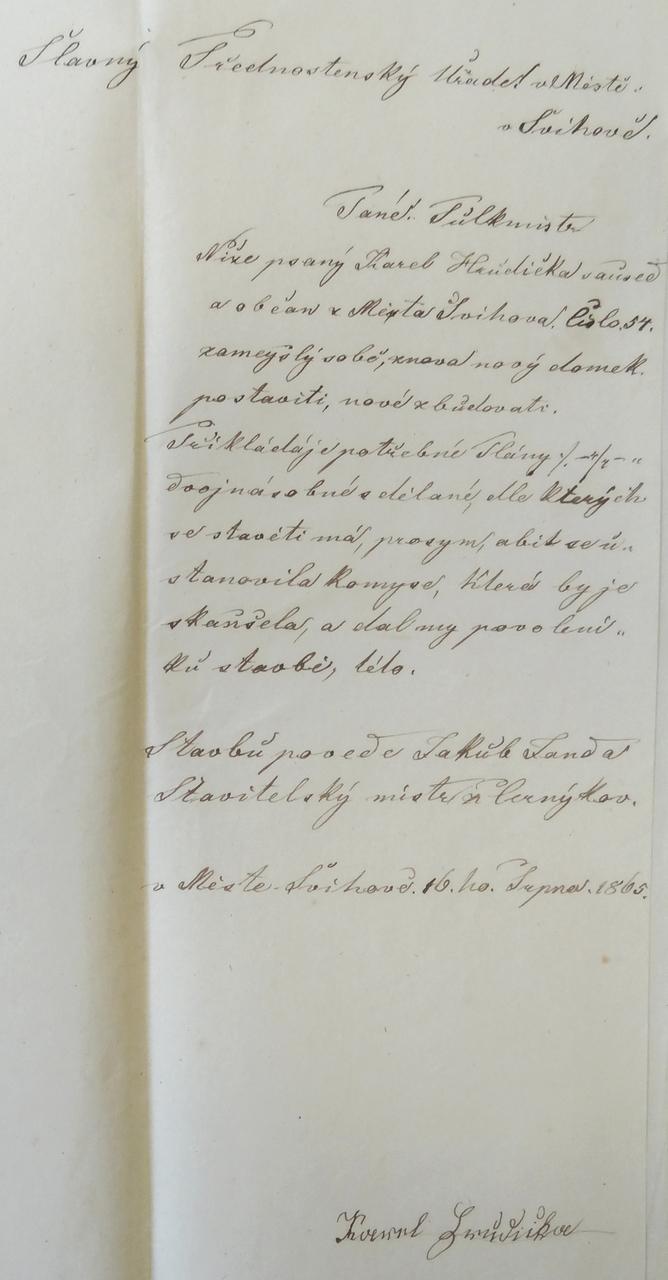 Slavný Přednostenský Úřade! v Městě.
v Švihově.
Pané. Půlkmistr
Níže psaný Karel Hrudička saused
a občan z Města Švihova. Číslo. 54.
zameyšlý sobě, znova nový domek.
postaviti, nové zbudovati.
Přikládáje potřebné Plány
dvojnásobné sdělané, dle kterých
se stavěti má, prosym, abit se u„
stanovila komyse, která by je
skaušela, a dal my povolení„
ků stavbě, této.
Stavbů povede Jakub Janda
Stavitelský mistr z Černýkov.
v Měste Švihově. 16. ho. Srpna. 1865.
Karel Hrudička